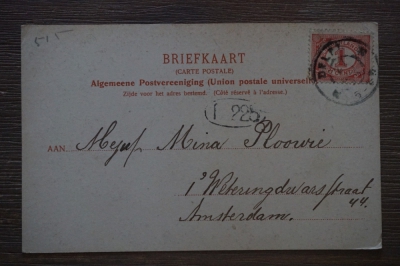 515
BRIEFKAART
(CARTE POSTALE)
Algemeene Postvereeniging (Union postale universelle)
Zijde voor het adres bestemd. (Côté réservé à l'adresse.)
AAN
Mejuf. Mina Ploowie
1e Weteringdwarsstraat
44.
Amsterdam.